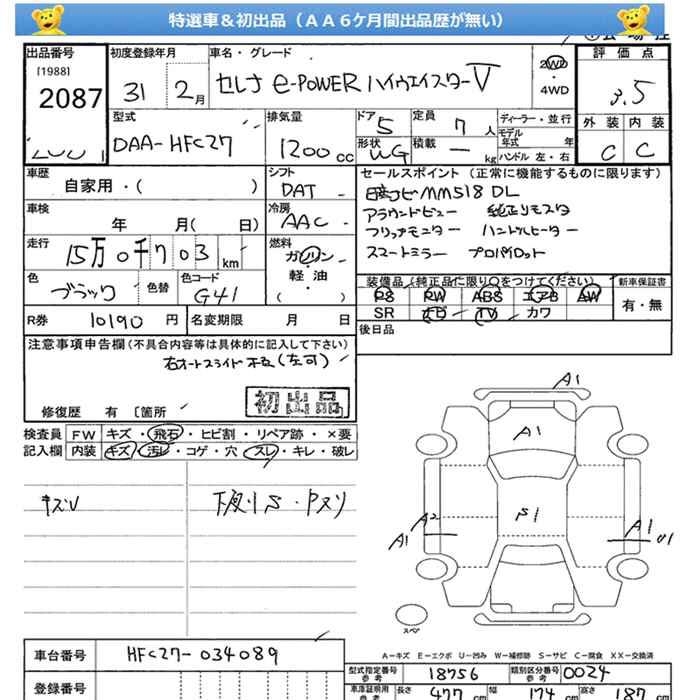 特選車＆初出品（ＡＡ６ケ月間出品歴が無い）
出品番号 [1988] 2087
初度登録年月 31 2月
車名・グレード セレナ e-POWER ハイウェイスターV
2WD・4WD
評価点 3.5
外装 内装
C C
型式 DAA-HFC27
排気量 1200cc
ドア 5 形状 WG
定員 7人 積載 ー kg
ディーラー・並行
モデル年式 年
ハンドル 左・右
車歴 自家用・( )
シフト DAT
冷房 AAC
車検 年 月( 日)
走行 15万0千703km
燃料 ガソリン・軽油・( )
色 ブラック 色替 色コード G41
セールスポイント（正常に機能するものに限ります）
日産ナビMM518DL
アラウンドビュー 純正リモスタ
フリップモニター ハンドルヒーター
スマートミラー プロパイロット
装備品（純正品に限り○をつけてください） 新車保証書
PS PW ABS エアB AW 有・無
SR ナビ TV カワ
R券 10190円 名変期限 月 日
後日品
注意事項申告欄（不具合内容等は具体的に記入して下さい）
右オートスライド不良(左可)
初出品
修復歴 有 〔箇所
検査員 FW キズ・飛石・ヒビ割・リペア跡・×要
記入欄 内装 キズ・汚レ・コゲ・穴・スレ・キレ・破レ
キズU 下廻りS・Pヌリ
A1
A1
S1
A2
A1
A1
U1
スペア
A-キズ E-エクボ U-凹み W-補修跡 S-サビ C-腐食 XX-交換済
車台番号 HFC27-034089
型式指定番号 参考 18756 類別区分番号 参考 0024
登録番号
車庫証明用 参考 長さ 477cm 幅 174cm 高さ 187cm